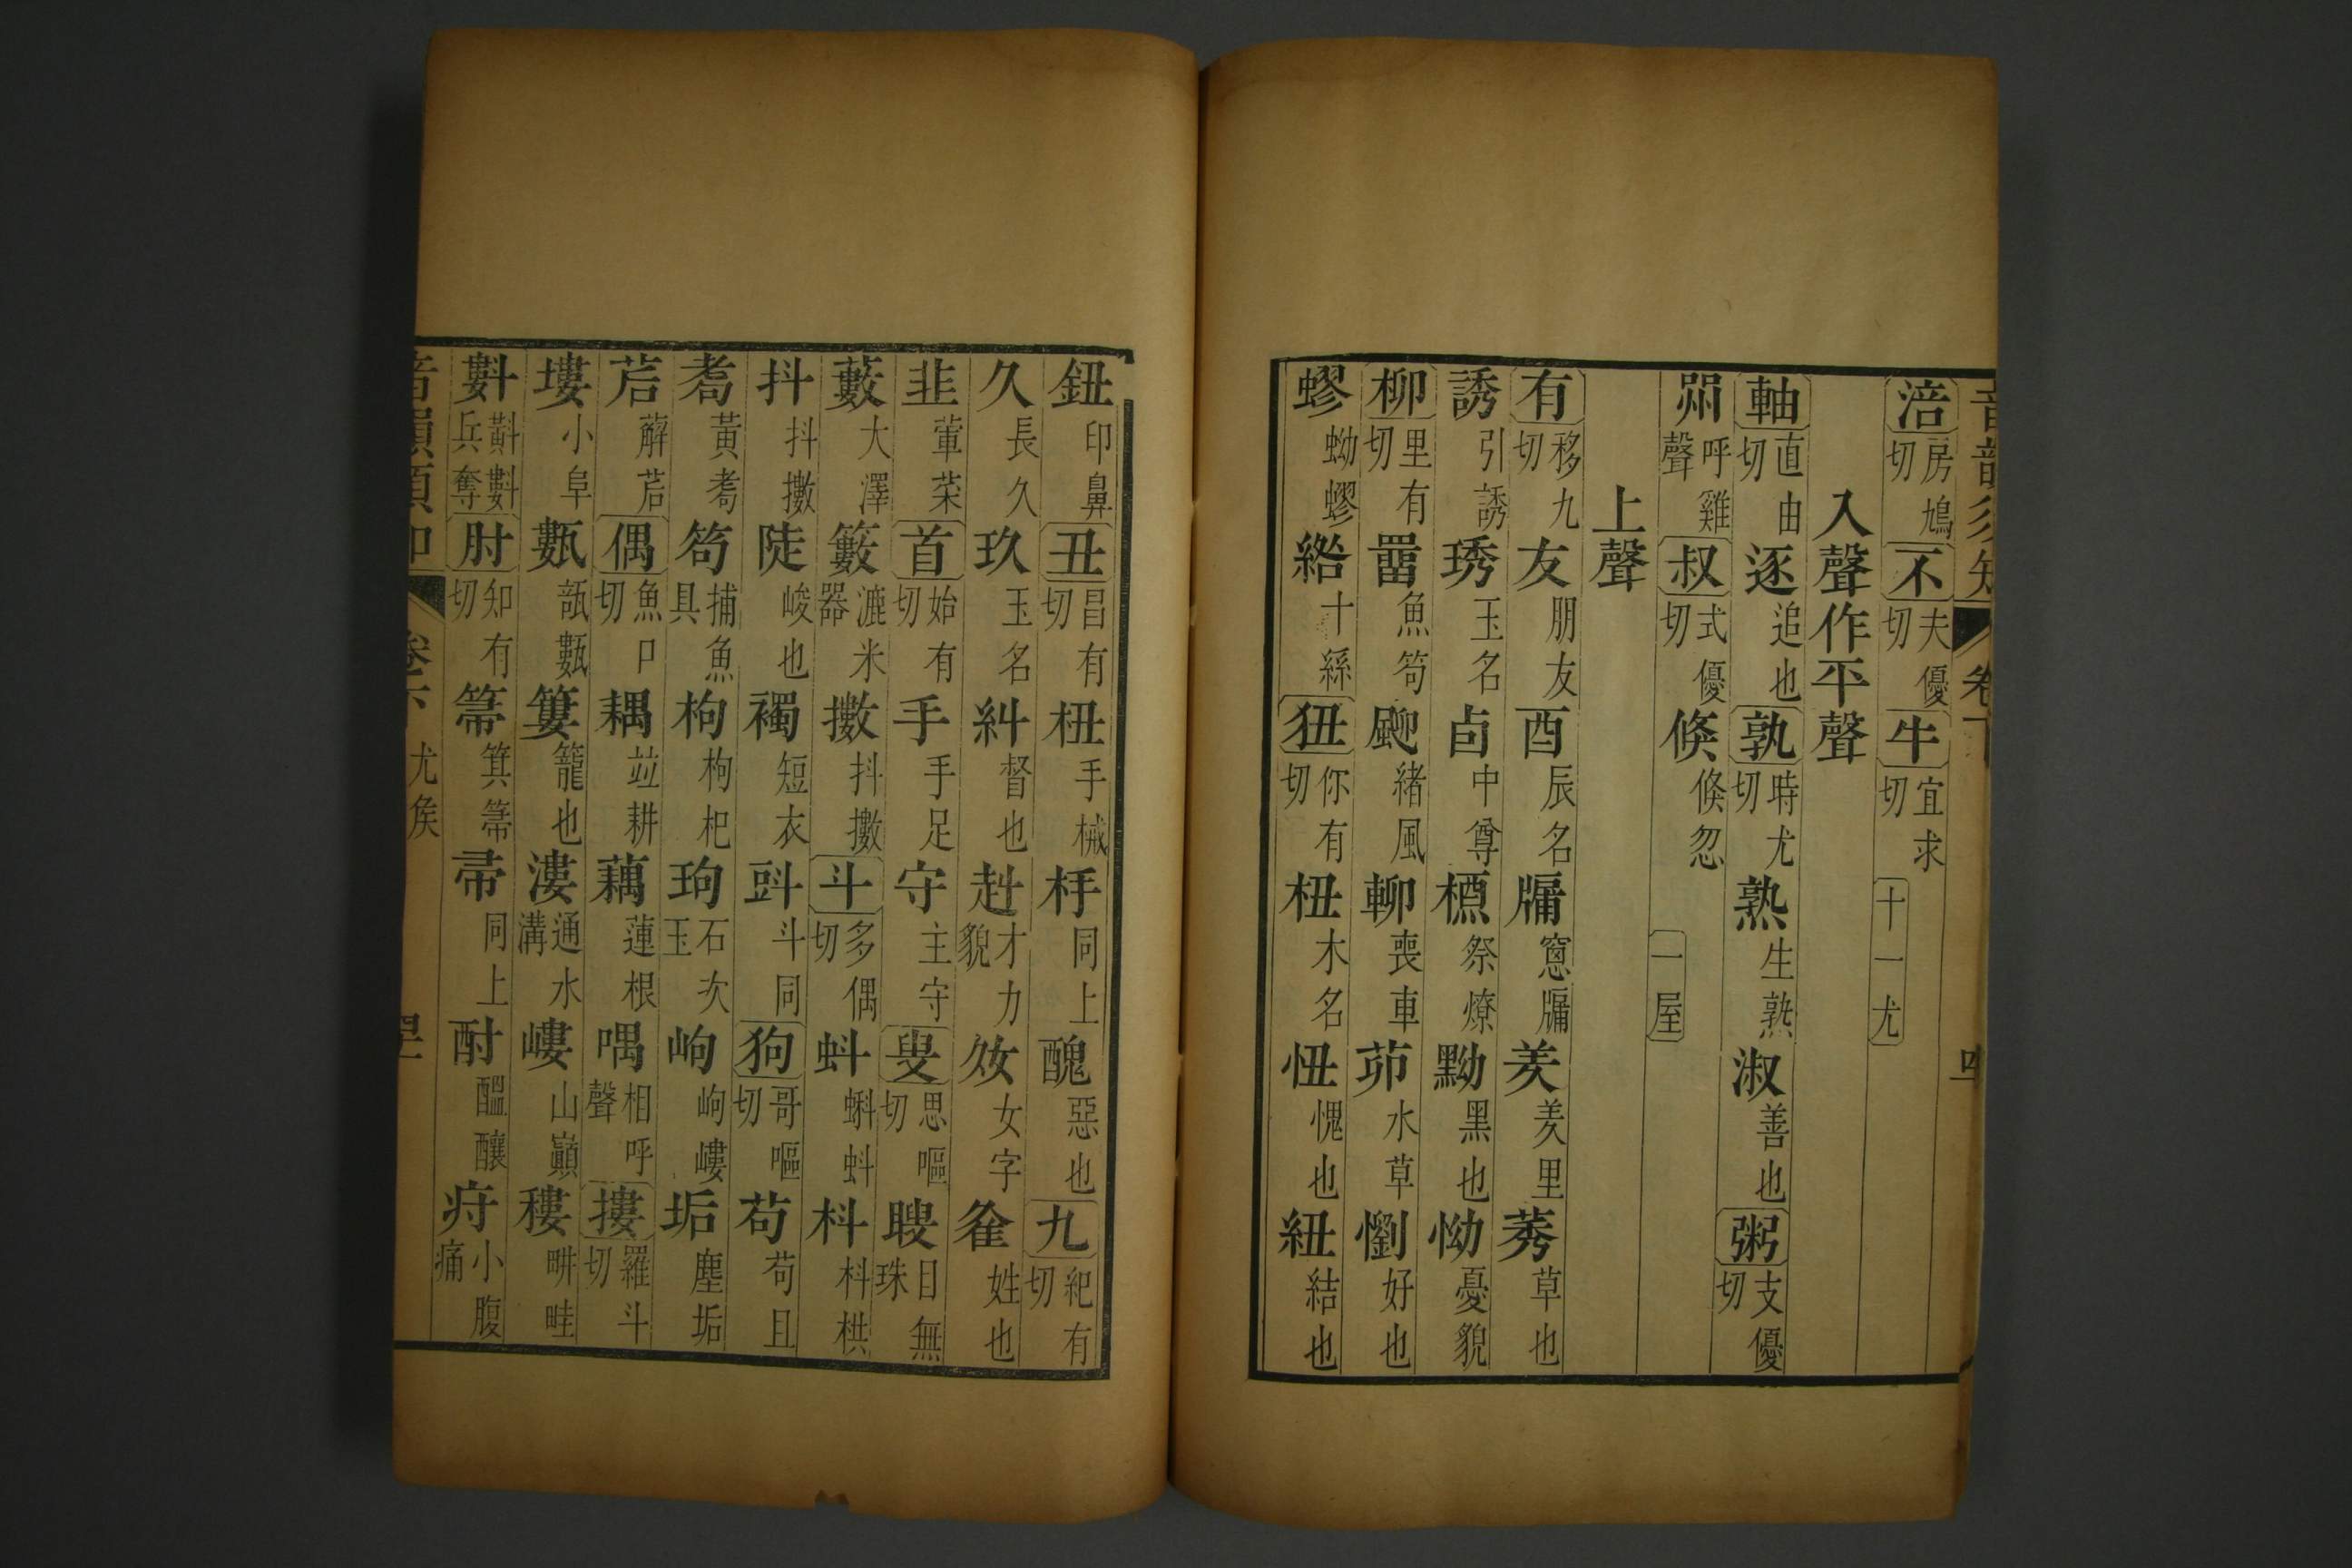 音韻須知 卷下
涪房鳩切 不夫優切 牛宜求切 十一尤
入聲作平聲
軸直由切 逐追也 孰時尤切 熟生熟 淑善也 粥支優切
喌呼雞聲 叔式優切 倏倏忽 一屋
上聲
有移九切 友朋友 酉辰名 牖窻牖 羑羑里 莠草也
誘引誘 琇玉名 卣中尊 槱祭燎 黝黑也 怮憂貌
柳里有切 罶魚笱 飹緒風 輀喪車 茆水草 懰好也
蟉蚴蟉 綹十絲 狃你有切 杻木名 忸愧也 紐結也
鈕印鼻 丑昌有切 杻手械 杽同上 醜惡也 九紀有切
久長久 玖玉名 糾督也 赳才力貌 奺女字 姓也
韭葷菜 首始有切 手手足 守主守 叟思嘔切 瞍目無珠
藪大澤 籔漉米器 擻抖擻 斗多偶切 蚪蝌蚪 枓枓栱
抖抖擻 陡峻也 襡短衣 㪷斗同 狗哥嘔切 苟苟且
耇黃耇 笱捕魚具 枸枸杞 玽石次玉 岣岣嶁 垢塵垢
茩薢茩 偶魚口切 耦竝耕 藕蓮根 喁相呼聲 摟羅斗切
塿小阜 甊瓿甊 簍籠也 漊通水溝 嶁山巔 耬畊畦
䵞兵奪 肘知有切 箒箕箒 帚同上 酎醞釀 疛小腹痛
卷下 尤侯